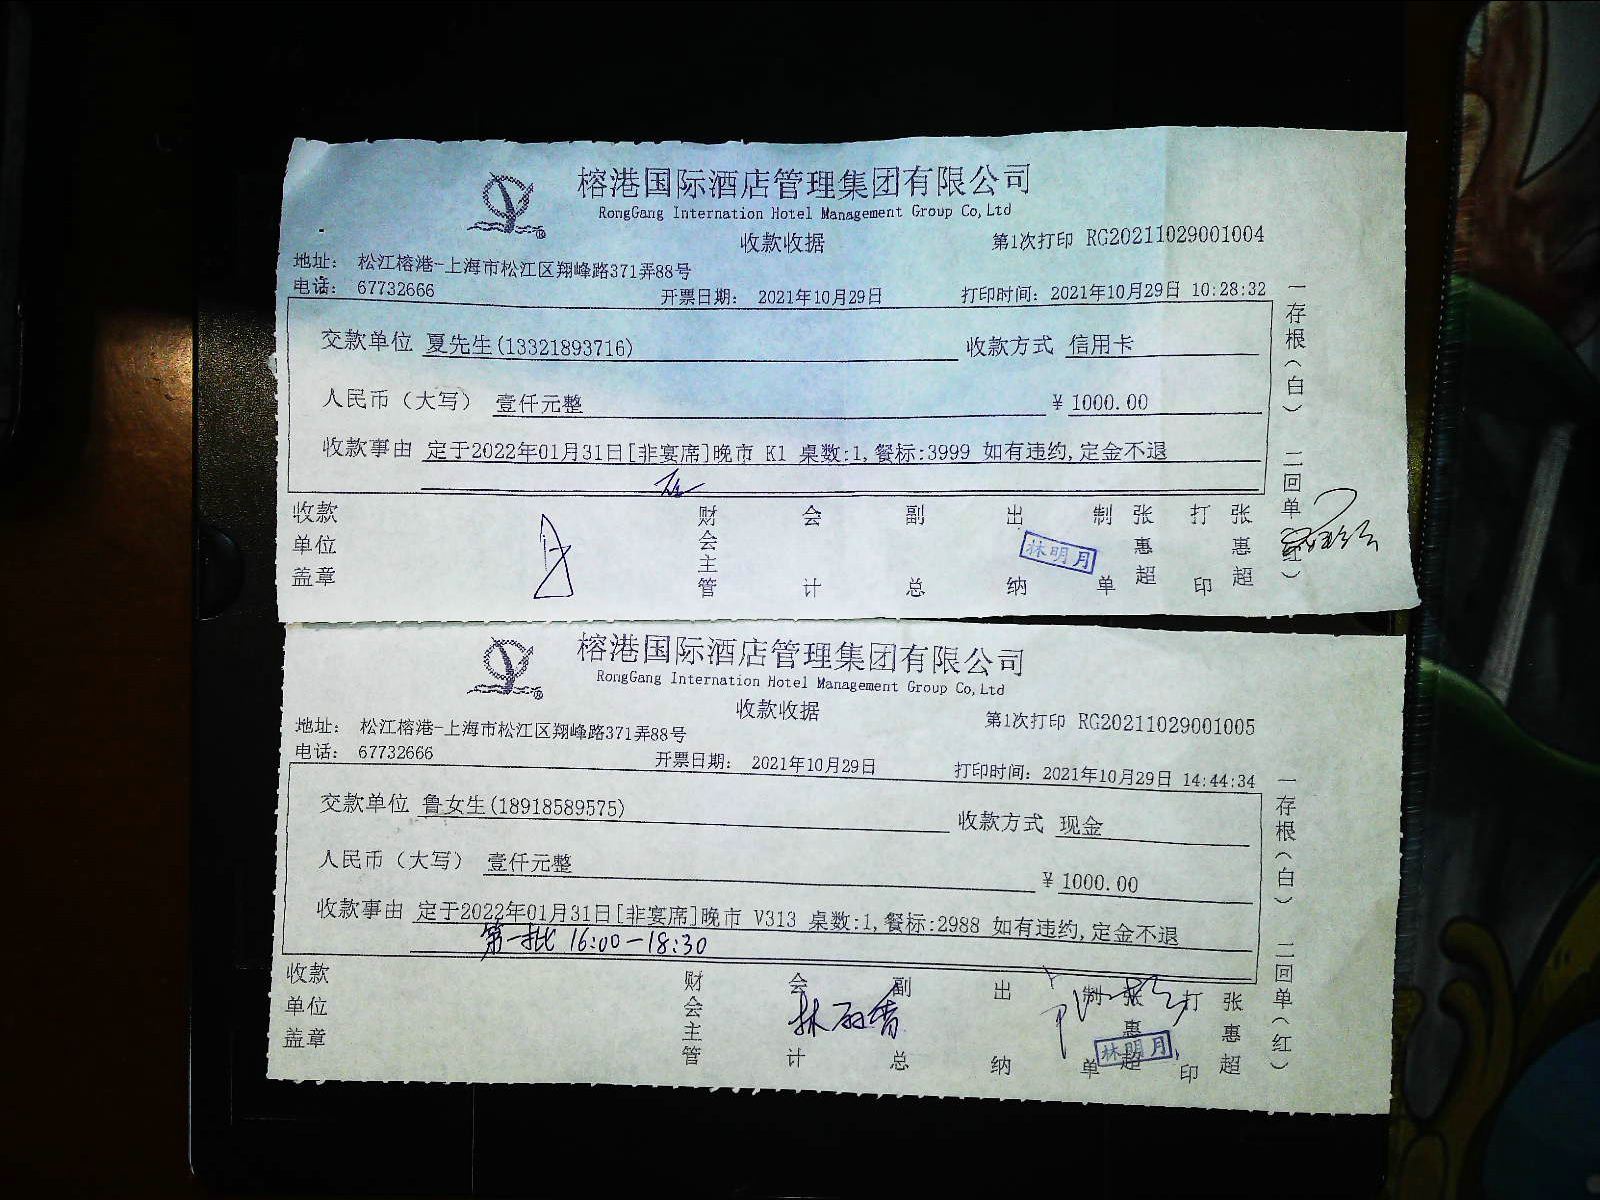 榕港国际酒店管理集团有限公司
RongGang Internation Hotel Management Group Co,Ltd
收款收据
第1次打印 RG20211029001004
地址: 松江榕港-上海市松江区翔峰路371弄88号
电话: 67732666
开票日期: 2021年10月29日
打印时间: 2021年10月29日 10:28:32
交款单位 夏先生(13321893716)
收款方式 信用卡
人民币（大写） 壹仟元整
¥ 1000.00
收款事由 定于2022年01月31日[非宴席]晚市 K1 桌数:1,餐标:3999 如有违约,定金不退
收款单位盖章
财会主管
会计
副总
出纳
林明月
制单
张惠超
打印
张惠超
一存根（白） 二回单（红）
榕港国际酒店管理集团有限公司
RongGang Internation Hotel Management Group Co,Ltd
收款收据
第1次打印 RG20211029001005
地址: 松江榕港-上海市松江区翔峰路371弄88号
电话: 67732666
开票日期: 2021年10月29日
打印时间: 2021年10月29日 14:44:34
交款单位 鲁女生(18918589575)
收款方式 现金
人民币（大写） 壹仟元整
¥ 1000.00
收款事由 定于2022年01月31日[非宴席]晚市 V313 桌数:1,餐标:2988 如有违约,定金不退
第一批 16:00-18:30
收款单位盖章
财会主管
会计
副总
出纳
制单
张惠超
林明月
打印
张惠超
一存根（白） 二回单（红）